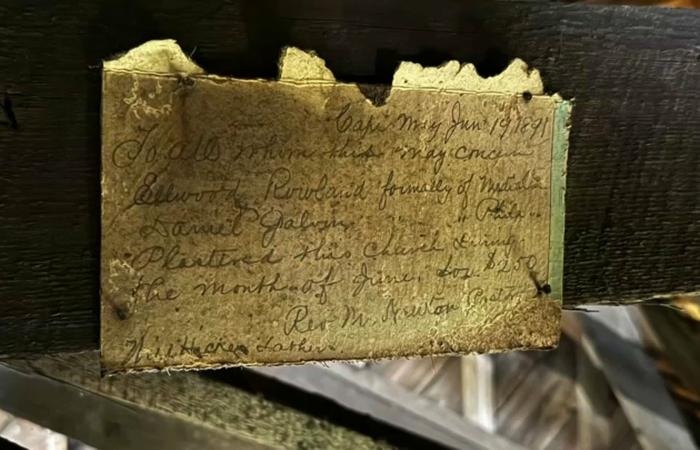 Cape May Jun 19 1891
To all whom this may concern
Ellwood Rowland formally of
Daniel Galvin " " Phila "
Plastered this Church During
the month of June, for $250
Rev M. Newton Pastor
Hicken Lather